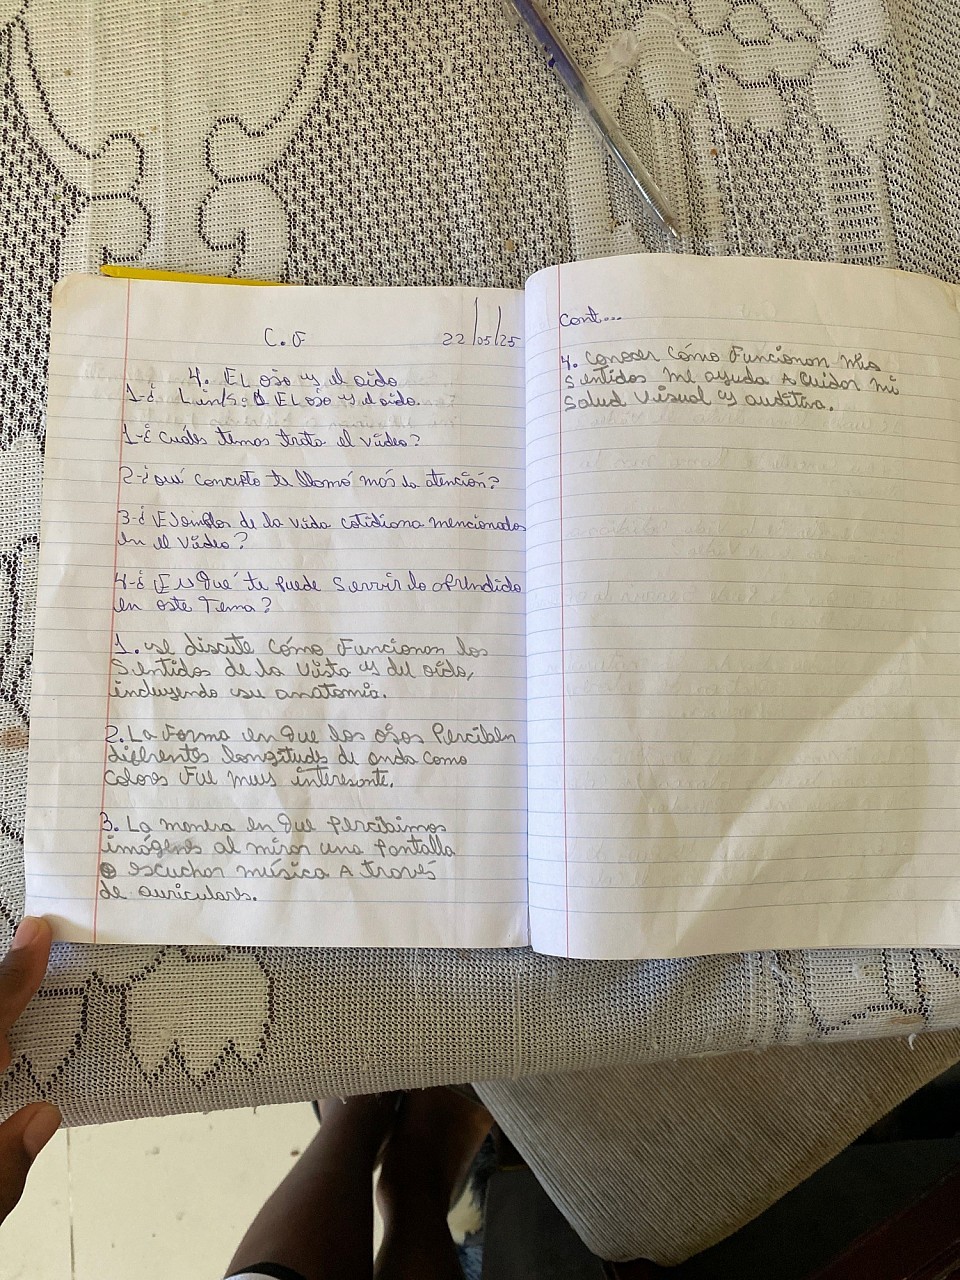 C.F 22/05/25
4. EL ojo y el oído
1-¿ Link: 1. EL ojo y el oído.
1-¿ Cuáles temas trata el video?
2-¿ qué concepto te llamó más la atención?
3-¿ Ejemplos de la vida cotidiana mencionados
en el video?
4-¿ En qué te puede servir lo aprendido
en este Tema?
1. se discute cómo Funcionan los
Sentidos de la vista y del oído,
incluyendo su anatomía.
2. La Forma en que los ojos Perciben
diferentes longitudes de onda como
colores Fue muy interesante.
3. La manera en que percibimos
imágenes al mirar una pantalla
o escuchar música A través
de auriculares.
Cont...
4. Conocer cómo Funcionan mis
Sentidos me ayuda A cuidar mi
Salud visual y auditiva.